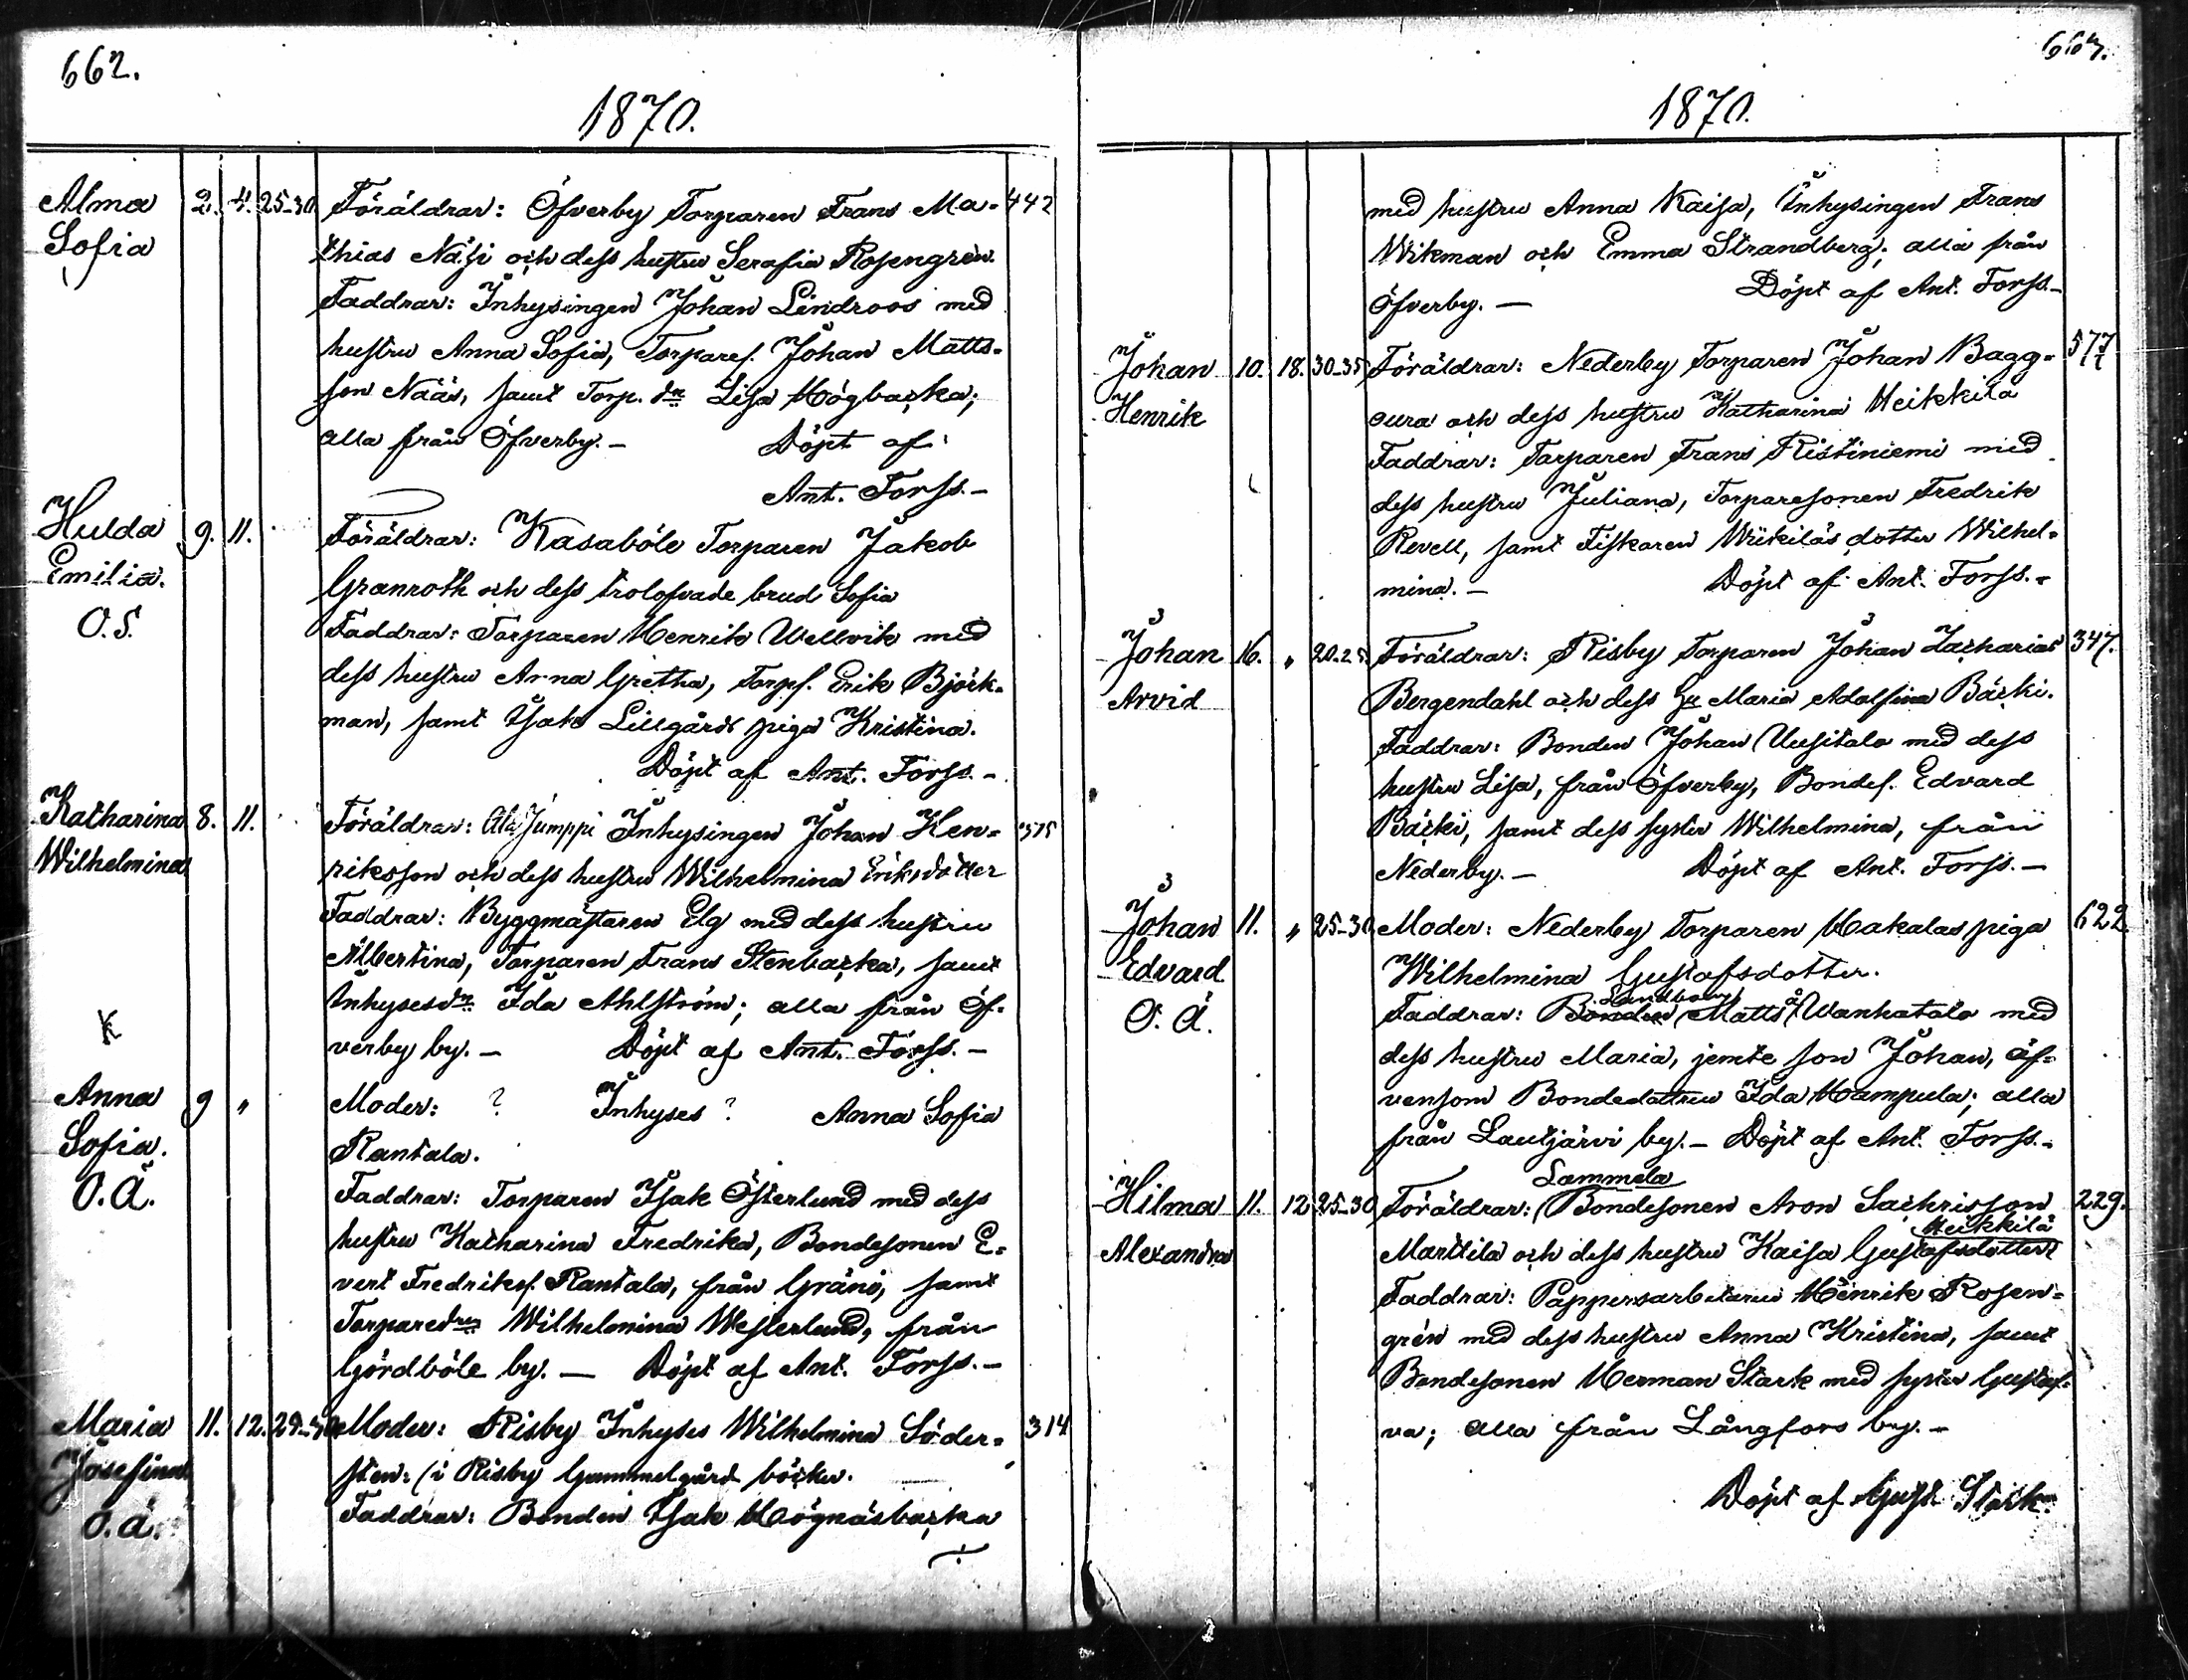 662.
1870.
Alma 2. 4. 25-30 Föräldrar: Öfverby Torparen Frans Ma- 442
Sofia thias Näsi och dess hustru Serafia Rosengrén.
Faddrar: Inhysingen Johan Lindroos med
hustru Anna Sofia, Torpares. Johan Matts-
son Nääs, samt Torp. dr Lisa Högbacka;
alla från Öfverby. — Döpt af
Ant. Forss. —
Hulda 9. 11. Föräldrar: Kasaböle Torparen Jakob
Emilia. Granroth och dess trolofvade brud Sofia
O.S. Faddrar: Torparen Henrik Wellvik med
dess hustru Anna Gretha, Torps. Erik Björk-
man, samt Isak Lillgårds piga Kristina.
Döpt af Ant. Forss. —
Katharina 8. 11. Föräldrar: Ala Jumppi Inhysingen Johan Hen- 375
Wilhelmina riksson och dess hustru Wilhelmina Eriksdotter
Faddrar: Byggmästaren Elg med dess hustru
Albertina, Torparen Frans Stenbacka, samt
Inhysesdr Ida Ahlström; alla från Öf-
K verby by. — Döpt af Ant. Forss. —
Anna 9 " Moder: ? Inhyses ? Anna Sofia
Sofia. Rantala.
O.Ä. Faddrar: Torparen Isak Österlund med dess
hustru Katharina Fredrika, Bondesonen E-
vert Fredriks. Rantala, från Gränö, samt
Torparedr Wilhelmina Westerlund, från
Gördböle by. — Döpt af Ant. Forss. —
Maria 11. 12. Moder: Risby Inhyses Wilhelmina Söder- 314
Josefina sten: (i Risby Gammelgård böcker.
O.ä. Faddrar: Bonden Isak Högnäsbacka
÷
1870.
med hustru Anna Kaisa, Inhysingen Frans
Wikman och Emma Strandberg; alla från
Öfverby. — Döpt af Ant. Forss. —
Johan 10. 18. 30-35 Föräldrar: Nederby Torparen Johan Bagg- 577
Henrik oura och dess hustru Katharina Heikkilä
Faddrar: Torparen Frans Ristiniemi med
dess hustru Juliana, Torparesonen Fredrik
Revell, samt Fiskaren Wiikiläs dotter Wilhel-
mina. — Döpt af Ant. Forss. —
Johan 16. " 20-25 Föräldrar: Risby Torparen Johan Zacharias 347.
Arvid Bergendahl och dess Hu Maria Adolfina Bäcki.
Faddrar: Bonden Johan Uusitalo med dess
hustru Lisa, från Öfverby, Bondes. Edvard
Bäcki, samt dess syster Wilhelmina, från
Nederby. — Döpt af Ant. Forss. —
Johan 11. " 25-30 Moder: Nederby Torparen Hakalas piga 622
Edvard Wilhelmina Gustafsdotter.
O.Ä. Faddrar: Bonden Matts Wanhatalo med
dess hustru Maria, jemte son Johan, äf-
vensom Bondedottren Ida Hampula; alla
från Lautjärvi by. — Döpt af Ant. Forss. —
Lammela
Hilma 11. 12 25-30 Föräldrar: Bondesonen Aron Sachrisson 229.
Heikkilä
Alexandra Marttila och dess hustru Kaisa Gustafsdotter
Faddrar: Pappersarbetaren Henrik Rosen-
grén med dess hustru Anna Kristina, samt
Bondesonen Herman Stark med syster Gustaf-
va; alla från Långfors by. —
Döpt af Gust. Stark.